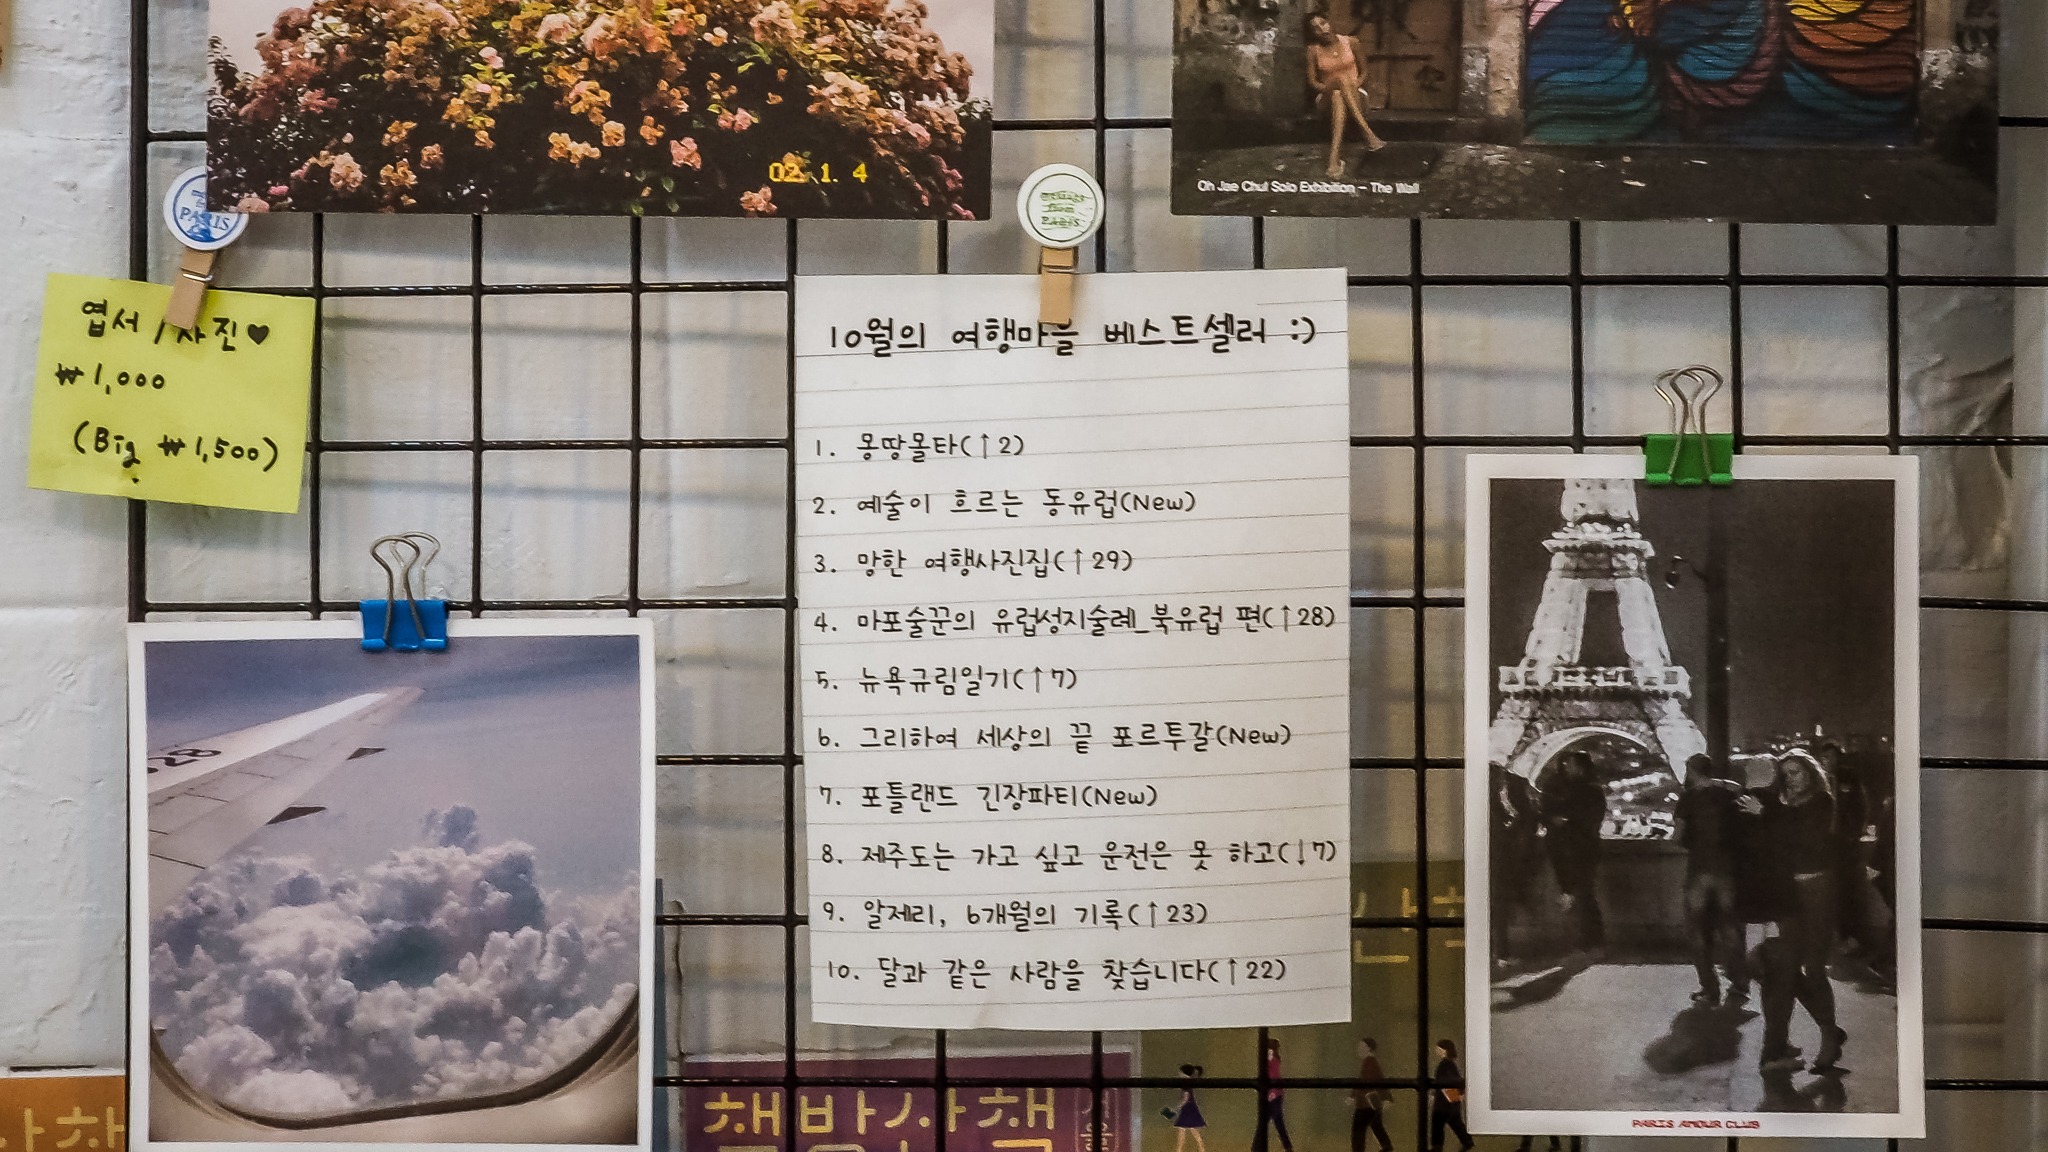 02. 1. 4
Oh Jae Chul Solo Exhibition – The Wall
PARIS
PARIS
엽서 / 사진♥
₩1,000
(Big ₩1,500)
10월의 여행마을 베스트셀러 :)
1. 몽땅몰타(↑2)
2. 예술이 흐르는 동유럽(New)
3. 망한 여행사진집(↑29)
4. 마포술꾼의 유럽성지술례_북유럽 편(↑28)
5. 뉴욕규림일기(↑7)
6. 그리하여 세상의 끝 포르투갈(New)
7. 포틀랜드 긴장파티(New)
8. 제주도는 가고 싶고 운전은 못 하고(↓7)
9. 알제리, 6개월의 기록(↑23)
10. 달과 같은 사람을 찾습니다(↑22)
책방산책
PARIS AMOUR CLUB